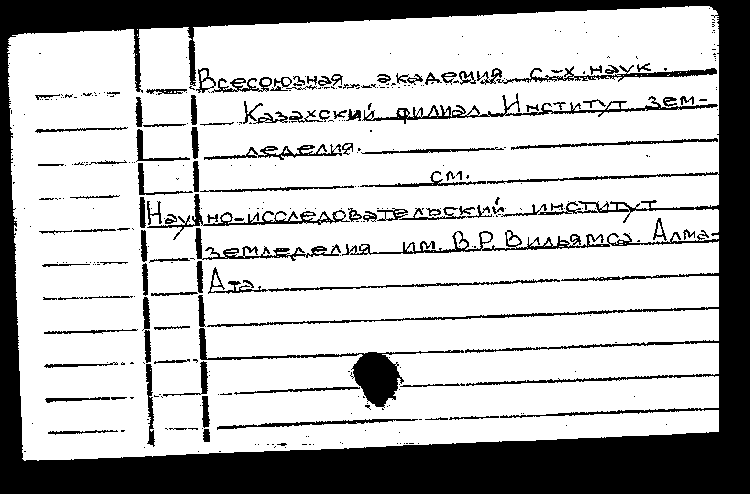 Всесоюзная академия с.-х. наук.
Казахский филиал. Институт зем-
леделия.
см.
Научно-исследовательский институт
земледелия им. В.Р. Вильямса. Алма-
Ата.